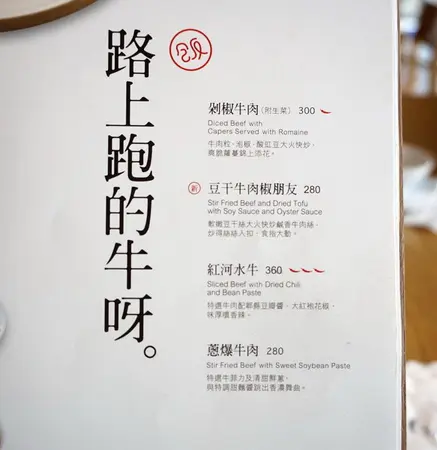 路上跑的牛呀。
剁椒牛肉(附生菜) 300
Diced Beef with
Capers Served with Romaine
牛肉粒、泡椒、酸豇豆大火快炒,
爽脆蘿蔓錦上添花。
新 豆干牛肉椒朋友 280
Stir Fried Beef and Dried Tofu
with Soy Sauce and Oyster Sauce
軟嫩豆干絲大火快炒鹹香牛肉絲,
炒得絲絲入扣,食指大動。
紅河水牛 360
Sliced Beef with Dried Chili
and Bean Paste
特選牛肉配郫縣豆瓣醬、大紅袍花椒,
味厚噴香辣。
蔥爆牛肉 280
Stir Fried Beef with Sweet Soybean Paste
特選牛菲力及清甜鮮蔥,
與特調甜麵醬跳出香濃舞曲。